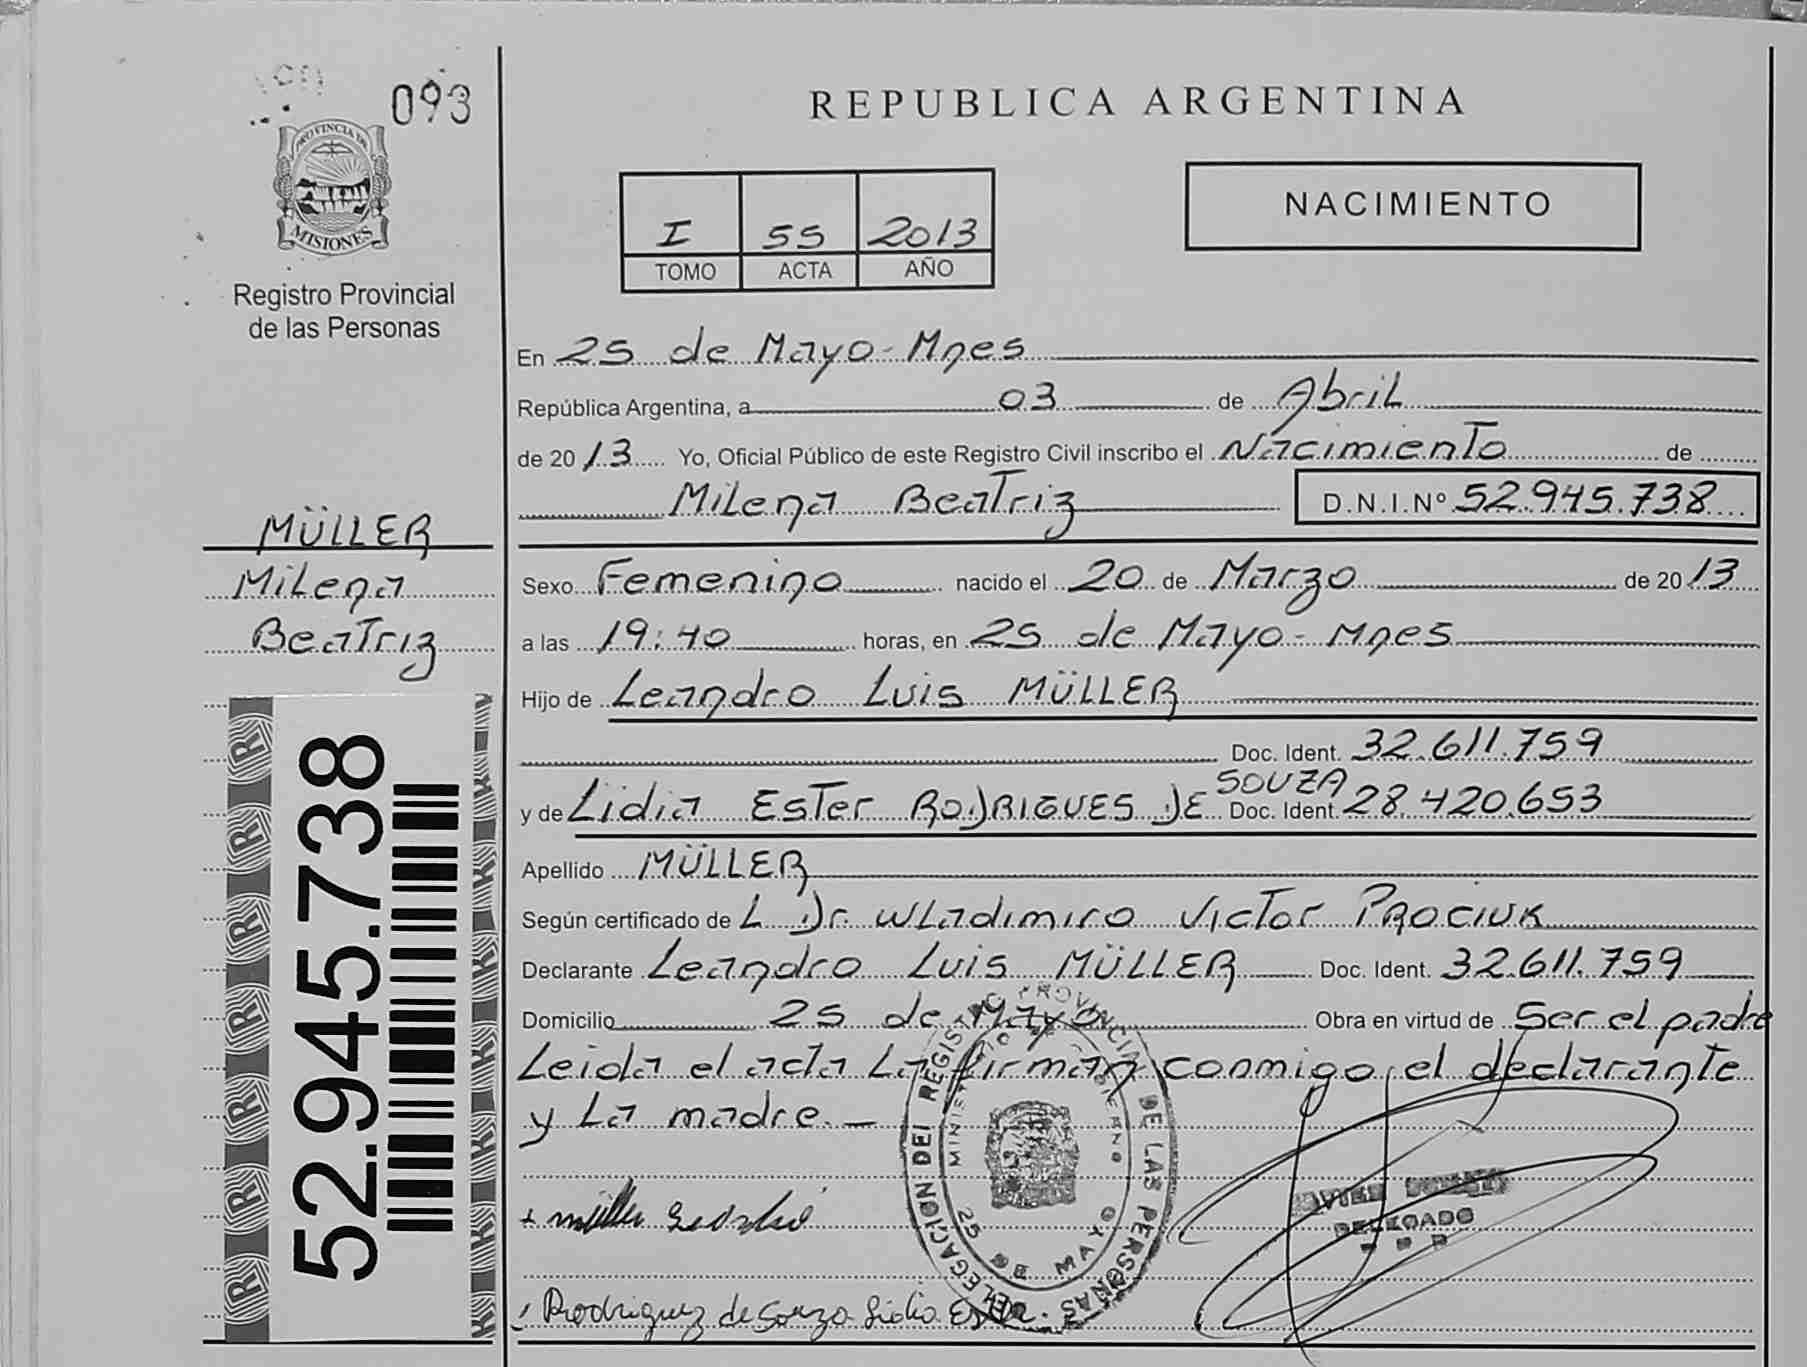 093
PROVINCIA DE
MISIONES
Registro Provincial
de las Personas
REPUBLICA ARGENTINA
I 55 2013
TOMO ACTA AÑO
NACIMIENTO
En 25 de Mayo - Mnes
República Argentina, a 03 de Abril
de 2013 Yo, Oficial Público de este Registro Civil inscribo el Nacimiento de
Milena Beatriz D.N.I.Nº 52.945.738
MÜLLER
Milena
Beatriz
52.945.738
Sexo Femenino nacido el 20 de Marzo de 2013
a las 19:40 horas, en 25 de Mayo - Mnes
Hijo de Leandro Luis MÜLLER
Doc. Ident. 32.611.759
y de Lidia Ester RODRIGUES DE SOUZA Doc. Ident. 28.420.653
Apellido MÜLLER
Según certificado de L Dr. Wladimiro Victor PROCIUK
Declarante Leandro Luis MÜLLER Doc. Ident. 32.611.759
Domicilio 25 de Mayo Obra en virtud de Ser el padre
Leida el acta La firman conmigo, el declarante
y La madre. —
DELEGACION DEL REGISTRO PROVINCIAL DE LAS PERSONAS
MINISTERIO DE GOBIERNO
25 DE MAYO
DELEGADO
+ müller Leandro
Rodriguez de Souza Lidia Ester.